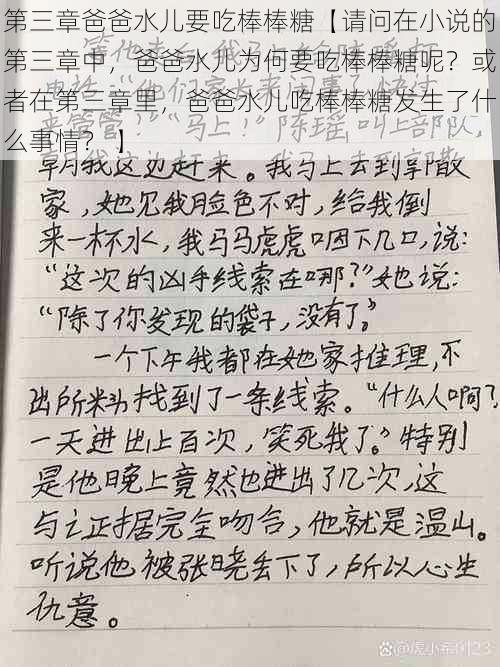 第三章爸爸水儿要吃棒棒糖【请问在小说的
第三章中，爸爸水儿为何要吃棒棒糖呢？或
者在第三章里，爸爸水儿吃棒棒糖发生了什
么事情？】
"马上！"陈瑶叫上部队，
朝我这边赶来。我马上去到郭散
家，她见我脸色不对，给我倒
来一杯水，我马马虎虎咽下几口，说：
“这次的凶手线索在哪？”她说：
“除了你发现的袋子，没有了。”
一个下午我都在她家推理，不
出所料找到了一条线索。“什么人啊？
一天进出上百次，笑死我了。”特别
是他晚上竟然也进出了几次，这
与证据完全吻合，他就是温山。
听说他被张晓丢下了，所以心生
仇意。
百家号/虎小希创23